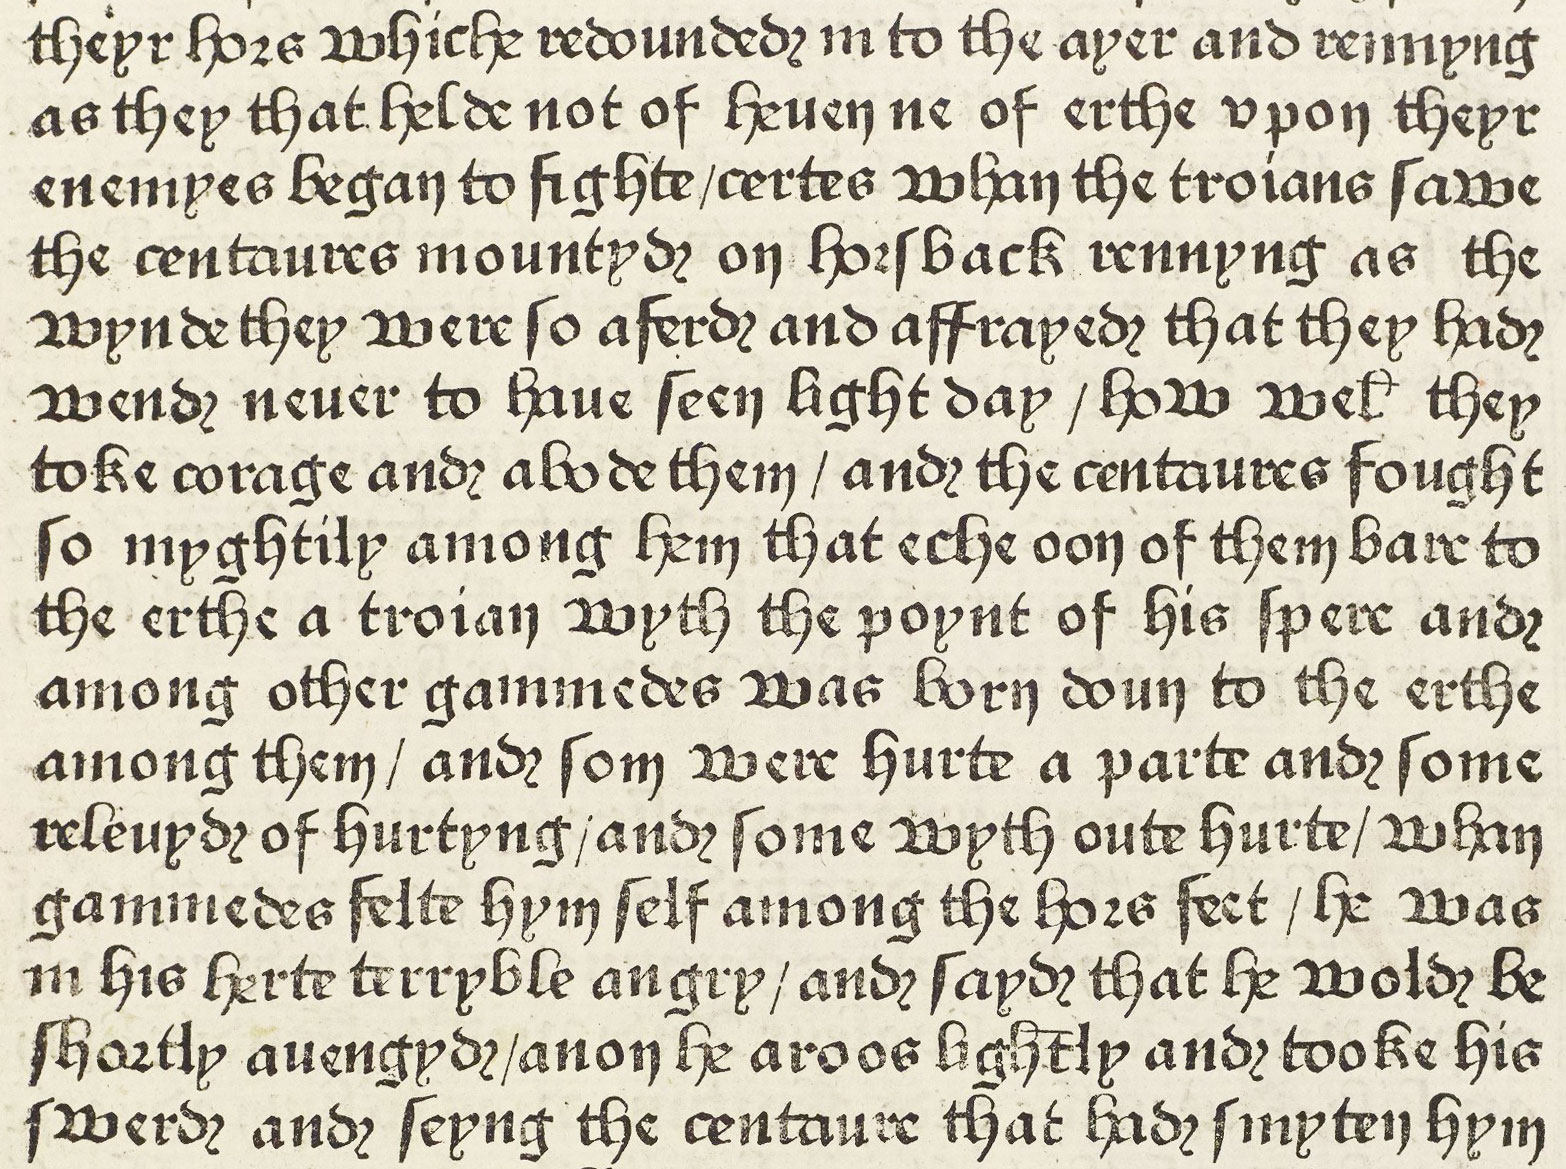 theyr hors whiche redounded in to the ayer and rennyng
as they that helde not of heuen ne of erthe vpon theyr
enemyes began to fighte/certes whan the troians sawe
the centaures mountyd on horsback rennyng as the
wynde they were so aferd and affrayed that they had
wend neuer to haue seen light day / how well they
toke corage and abode them / and the centaures fought
so myghtily among hem that eche oon of them bare to
the erthe a troian wyth the poynt of his spere and
among other gammedes was born doun to the erthe
among them / and som were hurte a parte and some
releuyd of hurtyng/and some wyth oute hurte/ whan
gammedes felte hym self among the hors feet / he was
in his herte terryble angry / and sayd that he wold be
shortly auengyd/anon he aroos lightly and tooke his
swerd and seyng the centaure that had smyten hym